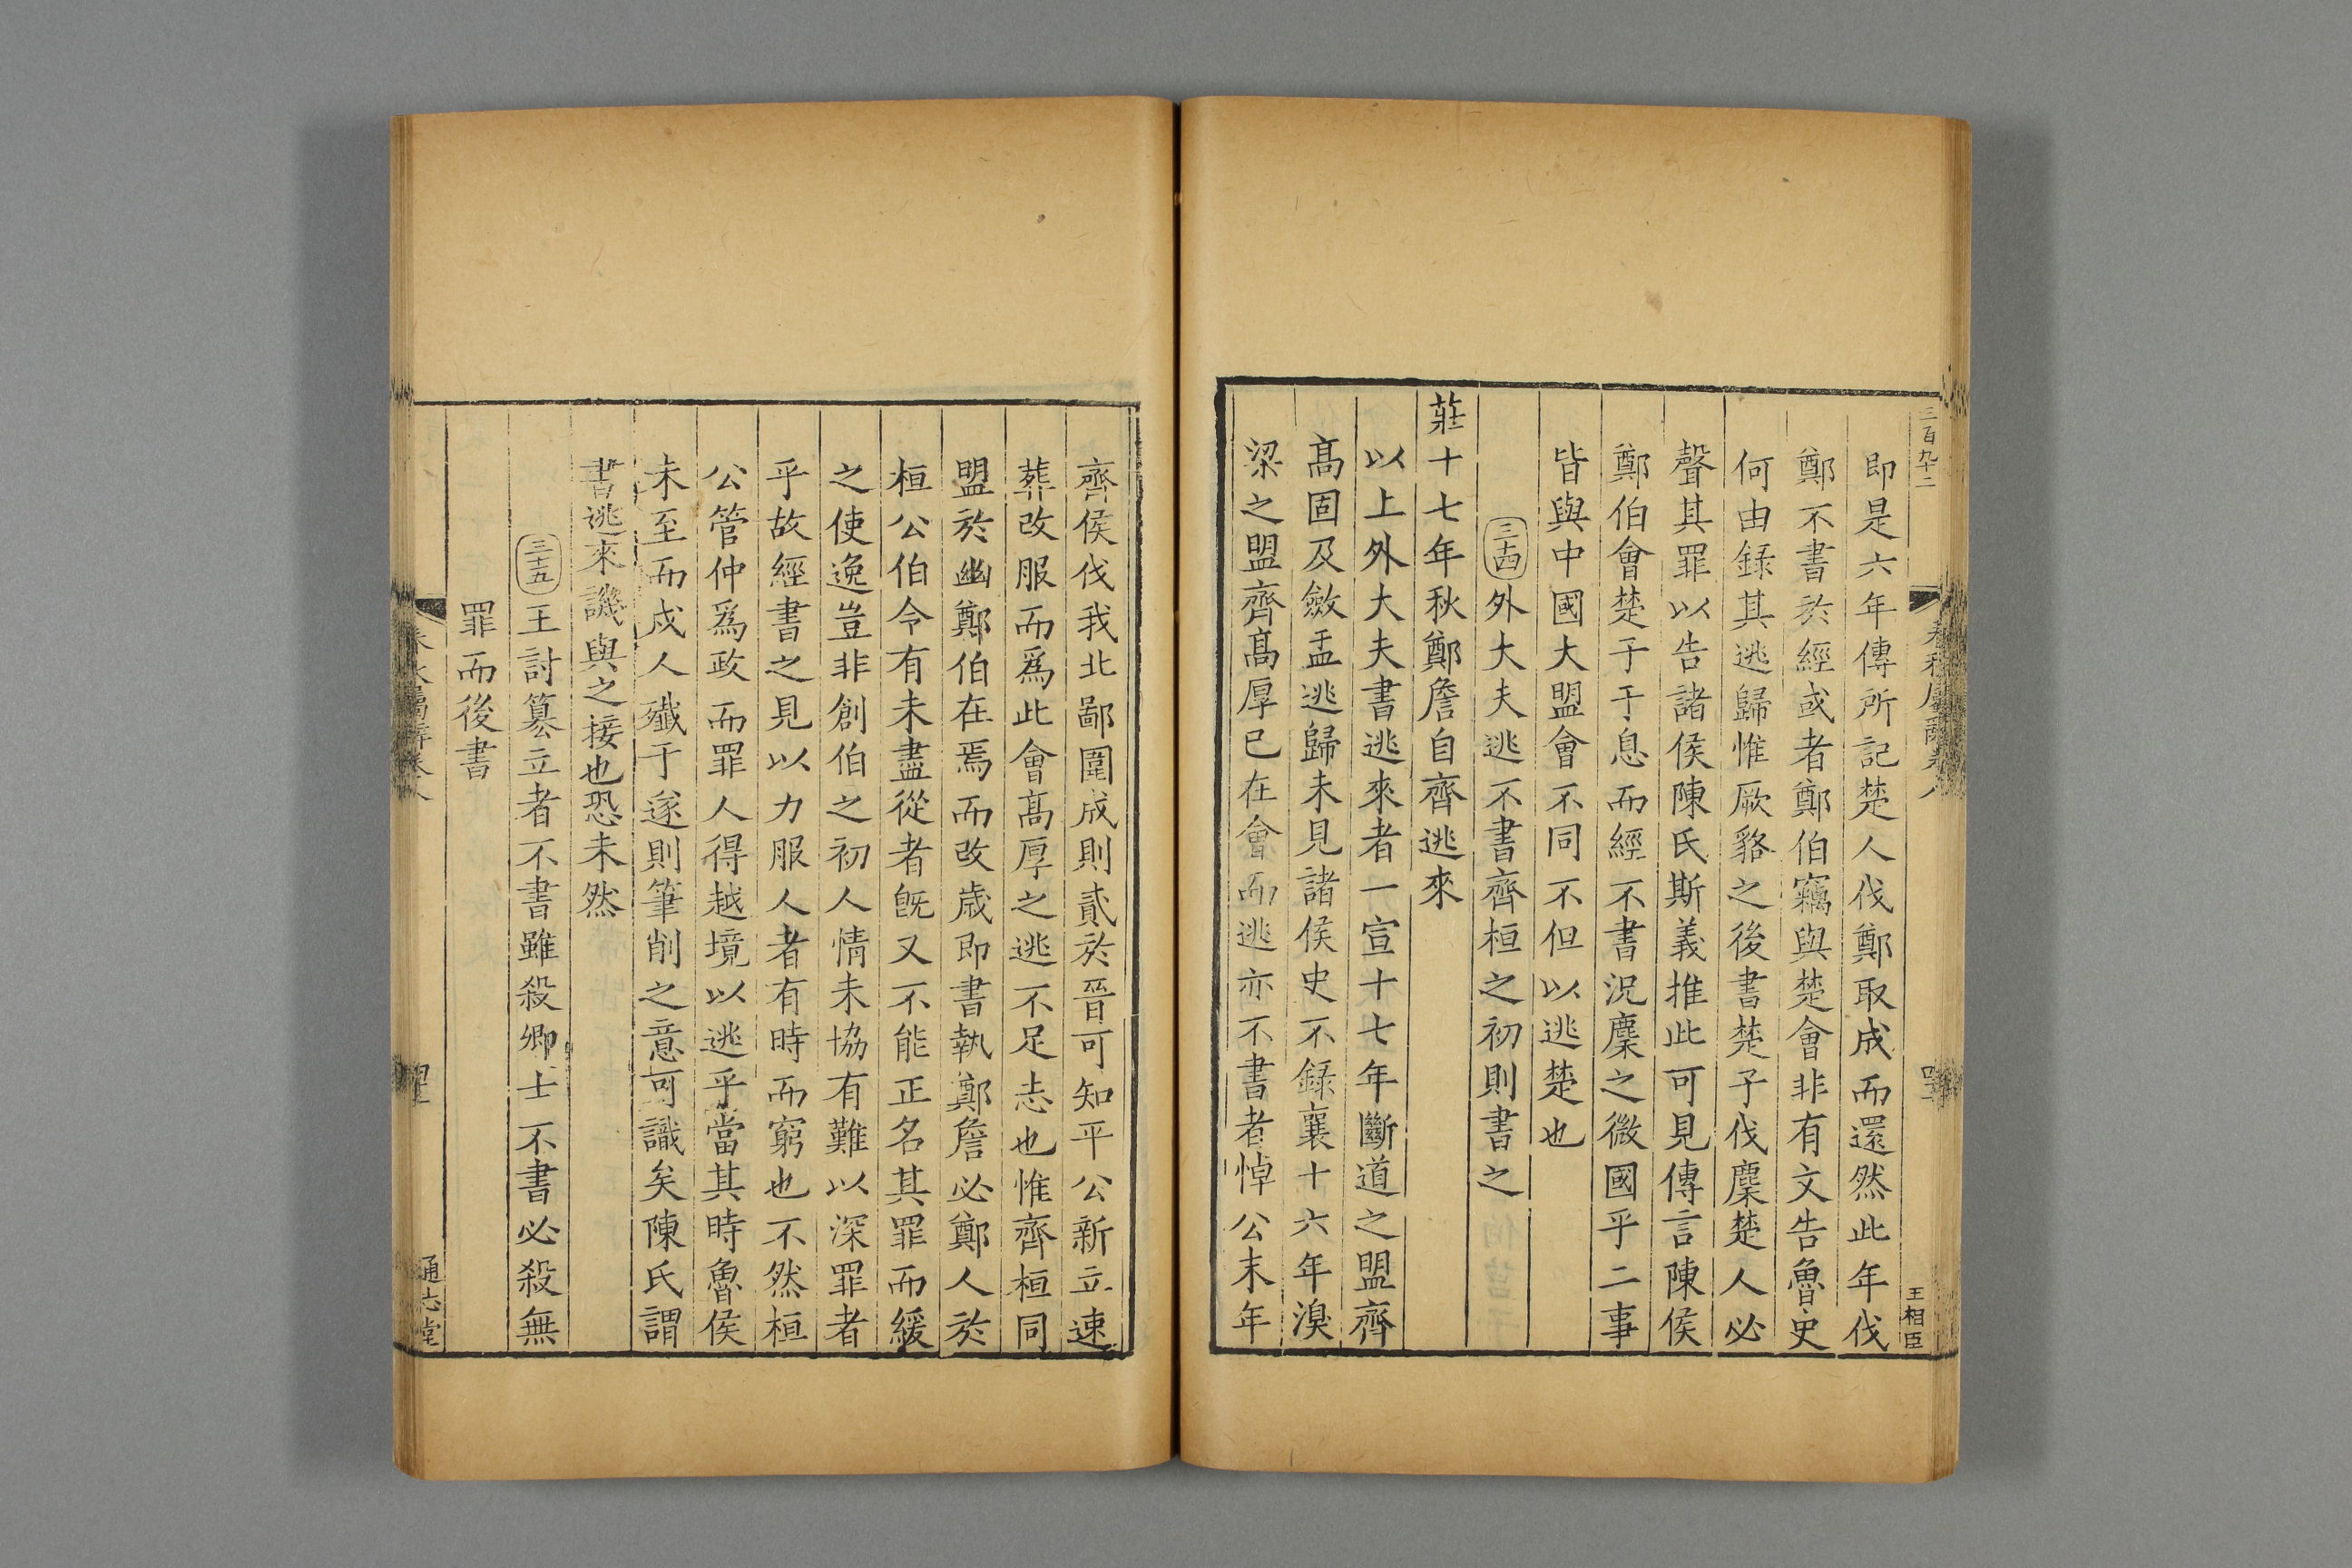 三百九十二
即是六年傳所記楚人伐鄭取成而還然此年伐
鄭不書於經或者鄭伯竊與楚會非有文告魯史
何由録其逃歸惟厥貉之後書楚子伐麇楚人必
聲其罪以告諸侯陳氏斯義推此可見傳言陳侯
鄭伯會楚子于息而經不書況麇之微國乎二事
皆與中國大盟會不同不但以逃楚也
三十四外大夫逃不書齊桓之初則書之
莊十七年秋鄭詹自齊逃來
以上外大夫書逃來者一宣十七年斷道之盟齊
髙固及斂盂逃歸未見諸侯史不録襄十六年湨
梁之盟齊髙厚已在會而逃亦不書者悼公末年
王相臣
齊侯伐我北鄙圍成則貳於晉可知平公新立速
葬改服而爲此會髙厚之逃不足志也惟齊桓同
盟於幽鄭伯在焉而改歳即書執鄭詹必鄭人於
桓公伯令有未盡從者旣又不能正名其罪而緩
之使逸豈非創伯之初人情未協有難以深罪者
乎故經書之見以力服人者有時而窮也不然桓
公管仲爲政而罪人得越境以逃乎當其時魯侯
未至而戍人殱于遂則筆削之意可識矣陳氏謂
書逃來譏與之接也恐未然
三十五王討簒立者不書雖殺卿士不書必殺無
罪而後書
通志堂